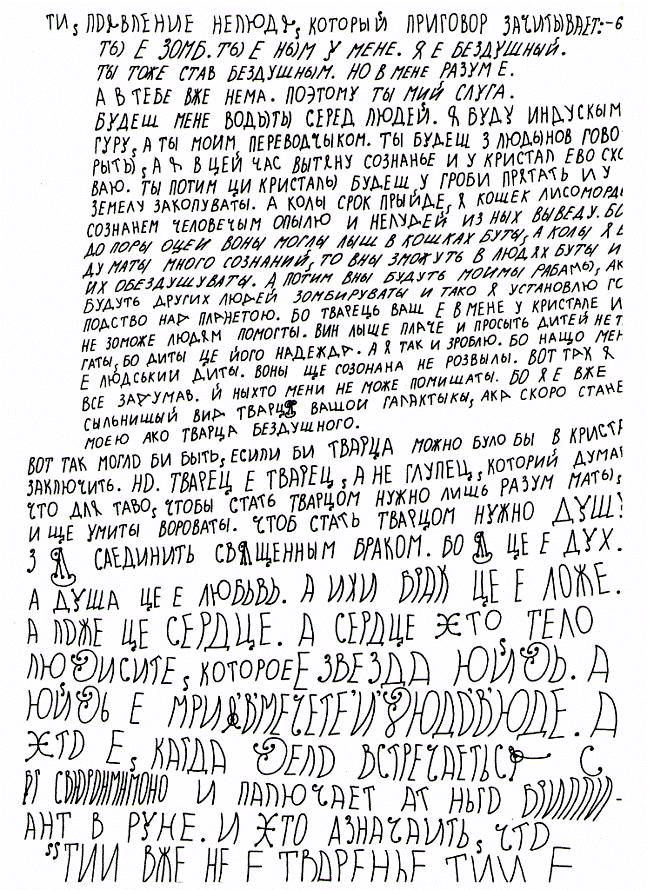 ТИ, ПОЯВЛЕНИЕ НЕЛЮДЯ, КОТОРЫЙ ПРИГОВОР ЗАЧИТЫВАЕТ:-Б
ТЫ Е ЗОМБ. ТЫ Е НЫМ У МЕНЕ. Я Е БЕЗДУШНЫЙ.
ТЫ ТОЖЕ СТАВ БЕЗДУШНЫМ. НО В МЕНЕ РАЗУМ Е.
А В ТЕБЕ ВЖЕ НЕМА. ПОЭТОМУ ТЫ МИЙ СЛУГА.
БУДЕШ МЕНЕ ВОДЫТЫ СЕРЕД ЛЮДЕЙ. Я БУДУ ИНДУСКЫМ
ГУРУ, А ТЫ МОИМ ПЕРЕВОДЧЫКОМ. ТЫ БУДЕШ З ЛЮДЫНОВ ГОВО
РЫТЫ, А Я В ЦЕЙ ЧАС ВЫТЯНУ СОЗНАНЬЕ И У КРИСТАЛ ЕВО СХО
ВАЮ. ТЫ ПОТИМ ЦИ КРИСТАЛЫ БУДЕШ У ГРОБИ ПРЯТАТЬ И У
ЗЕМЕЛУ ЗАКОПУВАТЫ. А КОЛЫ СРОК ПРЫЙДЕ, Я КОШЕК ЛИСОМОРДЫ
СОЗНАНЕМ ЧЕЛОВЕЧЫМ ОПЫЛЮ И НЕЛУДЕЙ ИЗ НЫХ ВЫВЕДУ. БО
ДО ПОРЫ ОЦЕЙ ВОНЫ МОГЛЫ ЛЫШ В КОШКАХ БУТЫ, А КОЛЫ Я Б
ДУ МАТЫ МНОГО СОЗНАНИЙ, ТО ВНЫ ЗМОЖУТЬ В ЛЮДЯХ БУТЫ И
ИХ ОБЕЗДУШУВАТЫ. А ПОТИМ ВНЫ БУДУТЬ МОИМЫ РАБАМЫ, АК
БУДУТЬ ДРУГИХ ЛЮДЕЙ ЗОМБИРУВАТЫ И ТАКО Я УСТАНОВЛЮ ГО
ПОДСТВО НАД ПЛАНЕТОЮ. БО ТВАРЕЦЬ ВАШ Е В МЕНЕ У КРИСТАЛЕ И
НЕ ЗОМОЖЕ ЛЮДЯМ ПОМОГТЫ. ВИН ЛЫЩЕ ПЛАЧЕ И ПРОСЫТЬ ДИТЕЙ НЕ Т
ГАТЫ, БО ДИТЫ ЦЕ ЙОГО НАДЕЖДА. А Я ТАК И ЗРОБЛЮ. БО НАЩО МЕН
Е ЛЮДСЬКИИ ДИТЫ. ВОНЫ ЩЕ СОЗОНАНА НЕ РОЗВЫЛЫ. ВОТ ТАК Я
ВСЕ ЗАДУМАВ. Й НЫХТО МЕНИ НЕ МОЖЕ ПОМИШАТЫ. БО Я Е ВЖЕ
СЫЛЬНИШЫЙ ВИД ТВАРЦЯ ВАШОИ ГАЛАКТЫКЫ, АКА СКОРО СТАНЕ
МОЕЮ АКО ТВАРЦА БЕЗДУШНОГО.
ВОТ ТАК МОГЛО БИ БЫТЬ, ЕСИЛИ БИ ТВАРЦА МОЖНО БУЛО БЫ В КРИСТА
ЗАКЛЮЧИТЬ. НО. ТВАРЕЦ Е ТВАРЕЦ, А НЕ ГЛУПЕЦ, КОТОРИЙ ДУМА
ЧТО ДЛЯ ТАВО, ЧТОБЫ СТАТЬ ТВАРЦОМ НУЖНО ЛИЩЬ РАЗУМ МАТЫ,
И ЩЕ УМИТЫ ВОРОВАТЫ. ЧТОБ СТАТЬ ТВАРЦОМ НУЖНО ДУШУ
З Д САЕДИНИТЬ СВЯЩЕННЫМ БРАКОМ. БО Д ЦЕ Е ДУХ.
А ДУША ЦЕ Е ЛЮБЬВЬ. А ИХИ БРАК ЦЕ Е ЛОЖЕ.
А ЛОЖЕ ЦЕ СЕРДЦЕ. А СЕРДЦЕ ЭТО ТЕЛО
КОТОРОЕ Е ЗВЕЗДА А
Е
ЭТО Е, КАГДА ВСТРЕЧАЕТЬСЯ С
И ПАЛЮЧАЕТ АТ НЬГО БРИЛЛИ-
АНТ В РУНЕ. И ЭТО АЗНАЧАИТЬ, ЧТО
ТИИ ВЖЕ НЕ Е ТВАРЕНЬЕ ТИИ Е